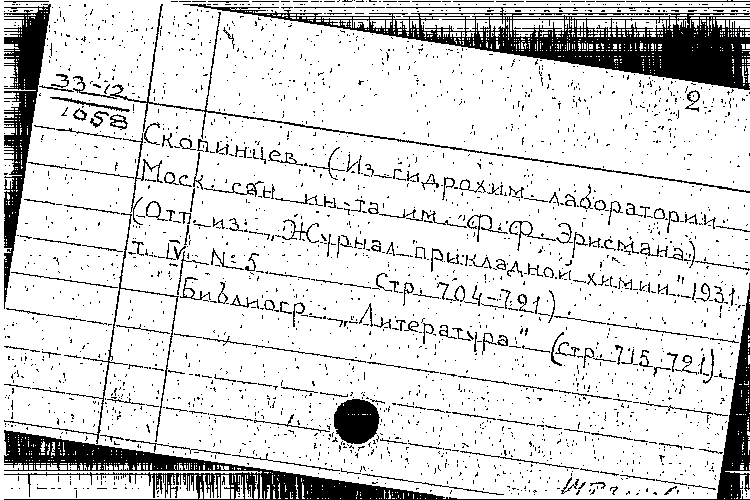 2
33-12
1658
Скопинцев. (Из гидрохим. лаборатории
Моск. сан. ин-та им. Ф.Ф. Эрисмана).
(Отт. из: „Журнал прикладной химии" 1931.
т. IV. №5 стр. 704-721).
Библиогр.: „Литература" (стр. 715, 721).